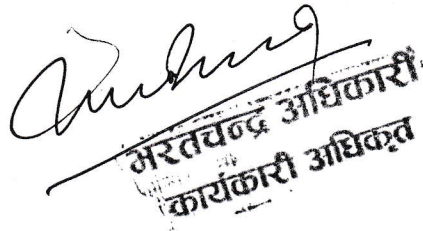 भरतचन्द्र अधिकारी
कार्यकारी अधिकृत